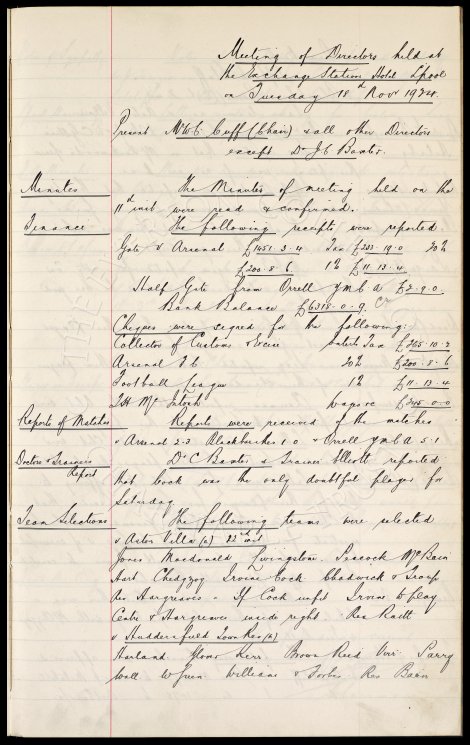 Meeting of Directors held at
the Exchange Station Hotel Lpool
on Tuesday 18th Novr 1924.
Present Mr W C Cuff (Chair) & all other Directors
except Dr J C Baxter.
Minutes The Minutes of meeting held on the
11th inst were read & confirmed.
Finance The following receipts were reported
Gate v Arsenal £1451.3.4 Tax £233.19.0 20%
£200.8.6 1% £11.13.4
Half Gate from Orrell YMCA £2.9.0
Bank Balance £6318.0.9 Cr
Cheques were signed for the following:
Collector of Customs & Excise Entert Tax £268.10.2
Arsenal F C 20% £200.8.6
Football League 1% £11.13.4
T H McIntosh wages a/c £345.0.0
Reports of Matches Reports were received of the matches
v Arsenal 2-3 Blackburn 1-0 v Orrell YMCA 5-1
Doctors & Trainers Dr C Baxter & Trainer Elliott reported
Report
that Cock was the only doubtful player for
Saturday
Team Selections The following teams were selected
v Aston Villa (a) 22nd inst
Jones Macdonald Livingstone Peacock McBain
Hart Chedgzoy Irvine Cock Chadwick & Troup
Res Hargreaves. If Cock unfit Irvine to play
Centre & Hargreaves inside right Res Raitt
v Huddersfield Town Res (a)
Harland Glover Kerr Brown Reid Virr Parry
Wall W Green Williams & Forbes Res Bain